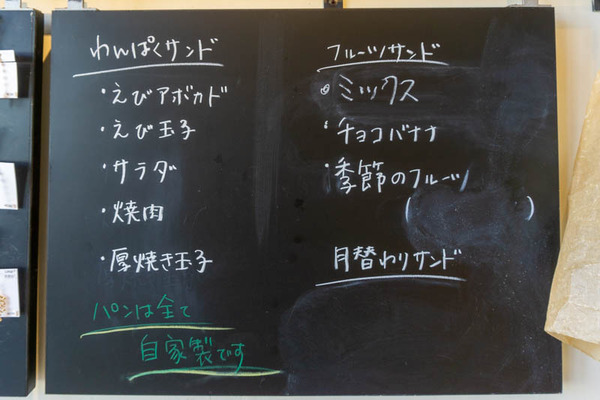 わんぱくサンド
・えびアボカド
・えび玉子
・サラダ
・焼肉
・厚焼き玉子
パンは全て
自家製です
フルーツサンド
・ミックス
・チョコバナナ
・季節のフルーツ
(　　　)
月替わりサンド